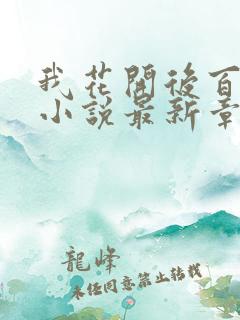 我花開後百
小說最新章
龍峰
未经同意禁止转载